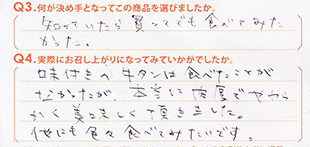 Q3.何が決め手となってこの商品を選びましたか。
知っていたら買ってでも食べてみた
かった。
Q4.実際にお召し上がりになってみていかがでしたか。
味付きの牛タンは食べたことが
なかったが、本当に肉厚でやわら
かく美味しく頂きました。
他にも色々食べてみたいです。